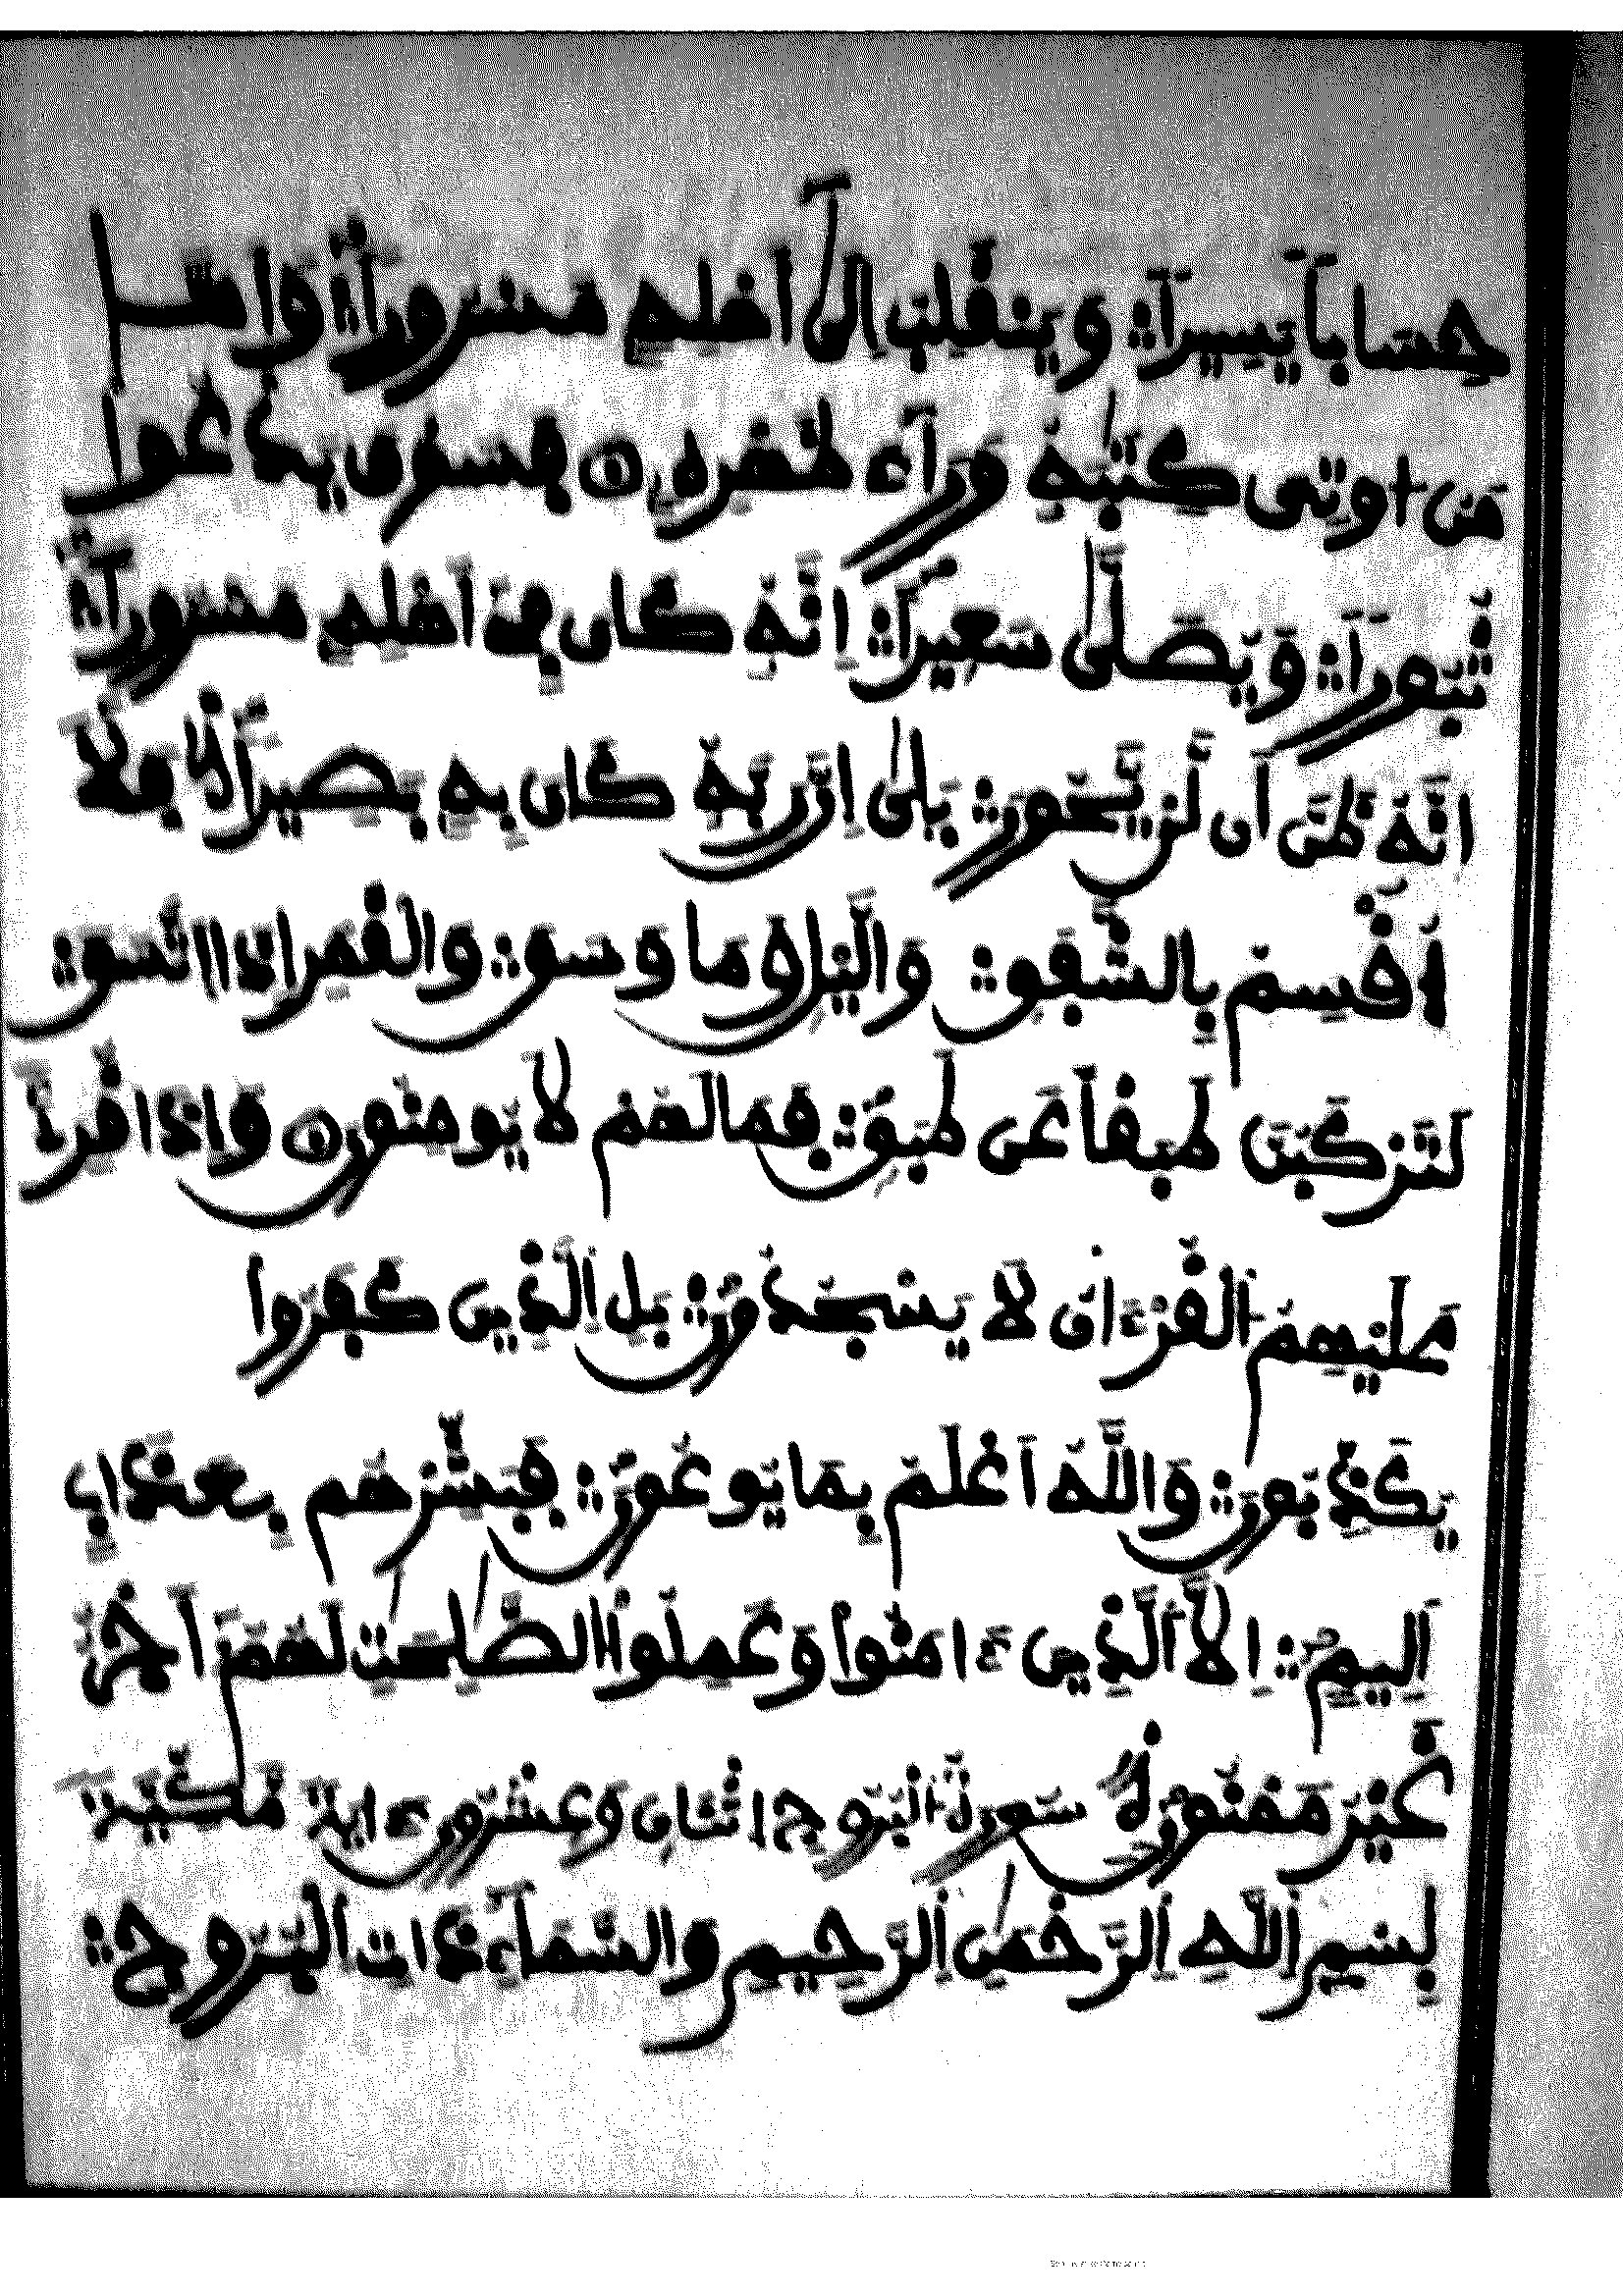 حِسَاباً يَسِيراً وَيَنقَلِبُ إِلَىٰ أَهْلِهِ مَسْرُوراً وَأَمَّا
مَنْ اوتِيَ كِتَٰبَهُ وَرَآءَ ظَهْرِهِ فَسَوْفَ يَدْعُوا
ثُبُوراً وَيُصَلَّىٰ سَعِيراً اِنَّهُ كَانَ فِي أَهْلِهِ مَسْرُوراً
اِنَّهُ ظَنَّ أَن لَّنْ يَّحُورَ بَلَىٰ إِنَّ رَبَّهُ كَانَ بِهِ بَصِيراً فَلَا
أُقْسِمُ بِالشَّفَقِ وَالَّيْلِ وَمَا وَسَقَ وَالْقَمَرِ إِذَا اتَّسَقَ
لَتَرْكَبُنَّ طَبَقاً عَن طَبَقٍ فَمَا لَهُمْ لَا يُومِنُونَ وَإِذَا قُرِئَ
عَلَيْهِمُ الْقُرْءَانُ لَا يَسْجُدُونَ بَلِ الَّذِينَ كَفَرُوا
يُكَذِّبُونَ وَاللَّهُ أَعْلَمُ بِمَا يُوعُونَ فَبَشِّرْهُم بِعَذَابٍ
أَلِيمٍ إِلَّا الَّذِينَ ءَامَنُوا وَعَمِلُوا الصَّٰلِحَٰتِ لَهُمْ أَجْرٌ
غَيْرُ مَمْنُونٍ سُورَةُ الْبُرُوجِ اثْنَانِ وَعِشْرُونَ ءَايَةً مَكِّيَّةٌ
بِسْمِ اللَّهِ الرَّحْمَٰنِ الرَّحِيمِ وَالسَّمَآءِ ذَاتِ الْبُرُوجِ